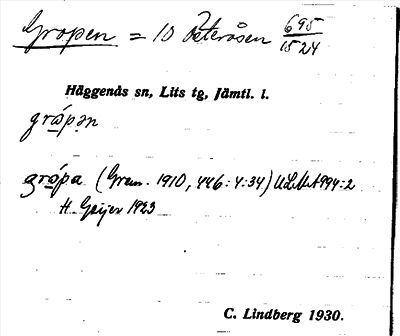 Gropen = 10 Österåsen 695/1524
Häggenås sn, Lits tg, Jämtl. l.
grǿpən
grǿpa (Gram. 1910, 446:4:34) ULMA 994:2
H. Geijer 1923
C. Lindberg 1930.